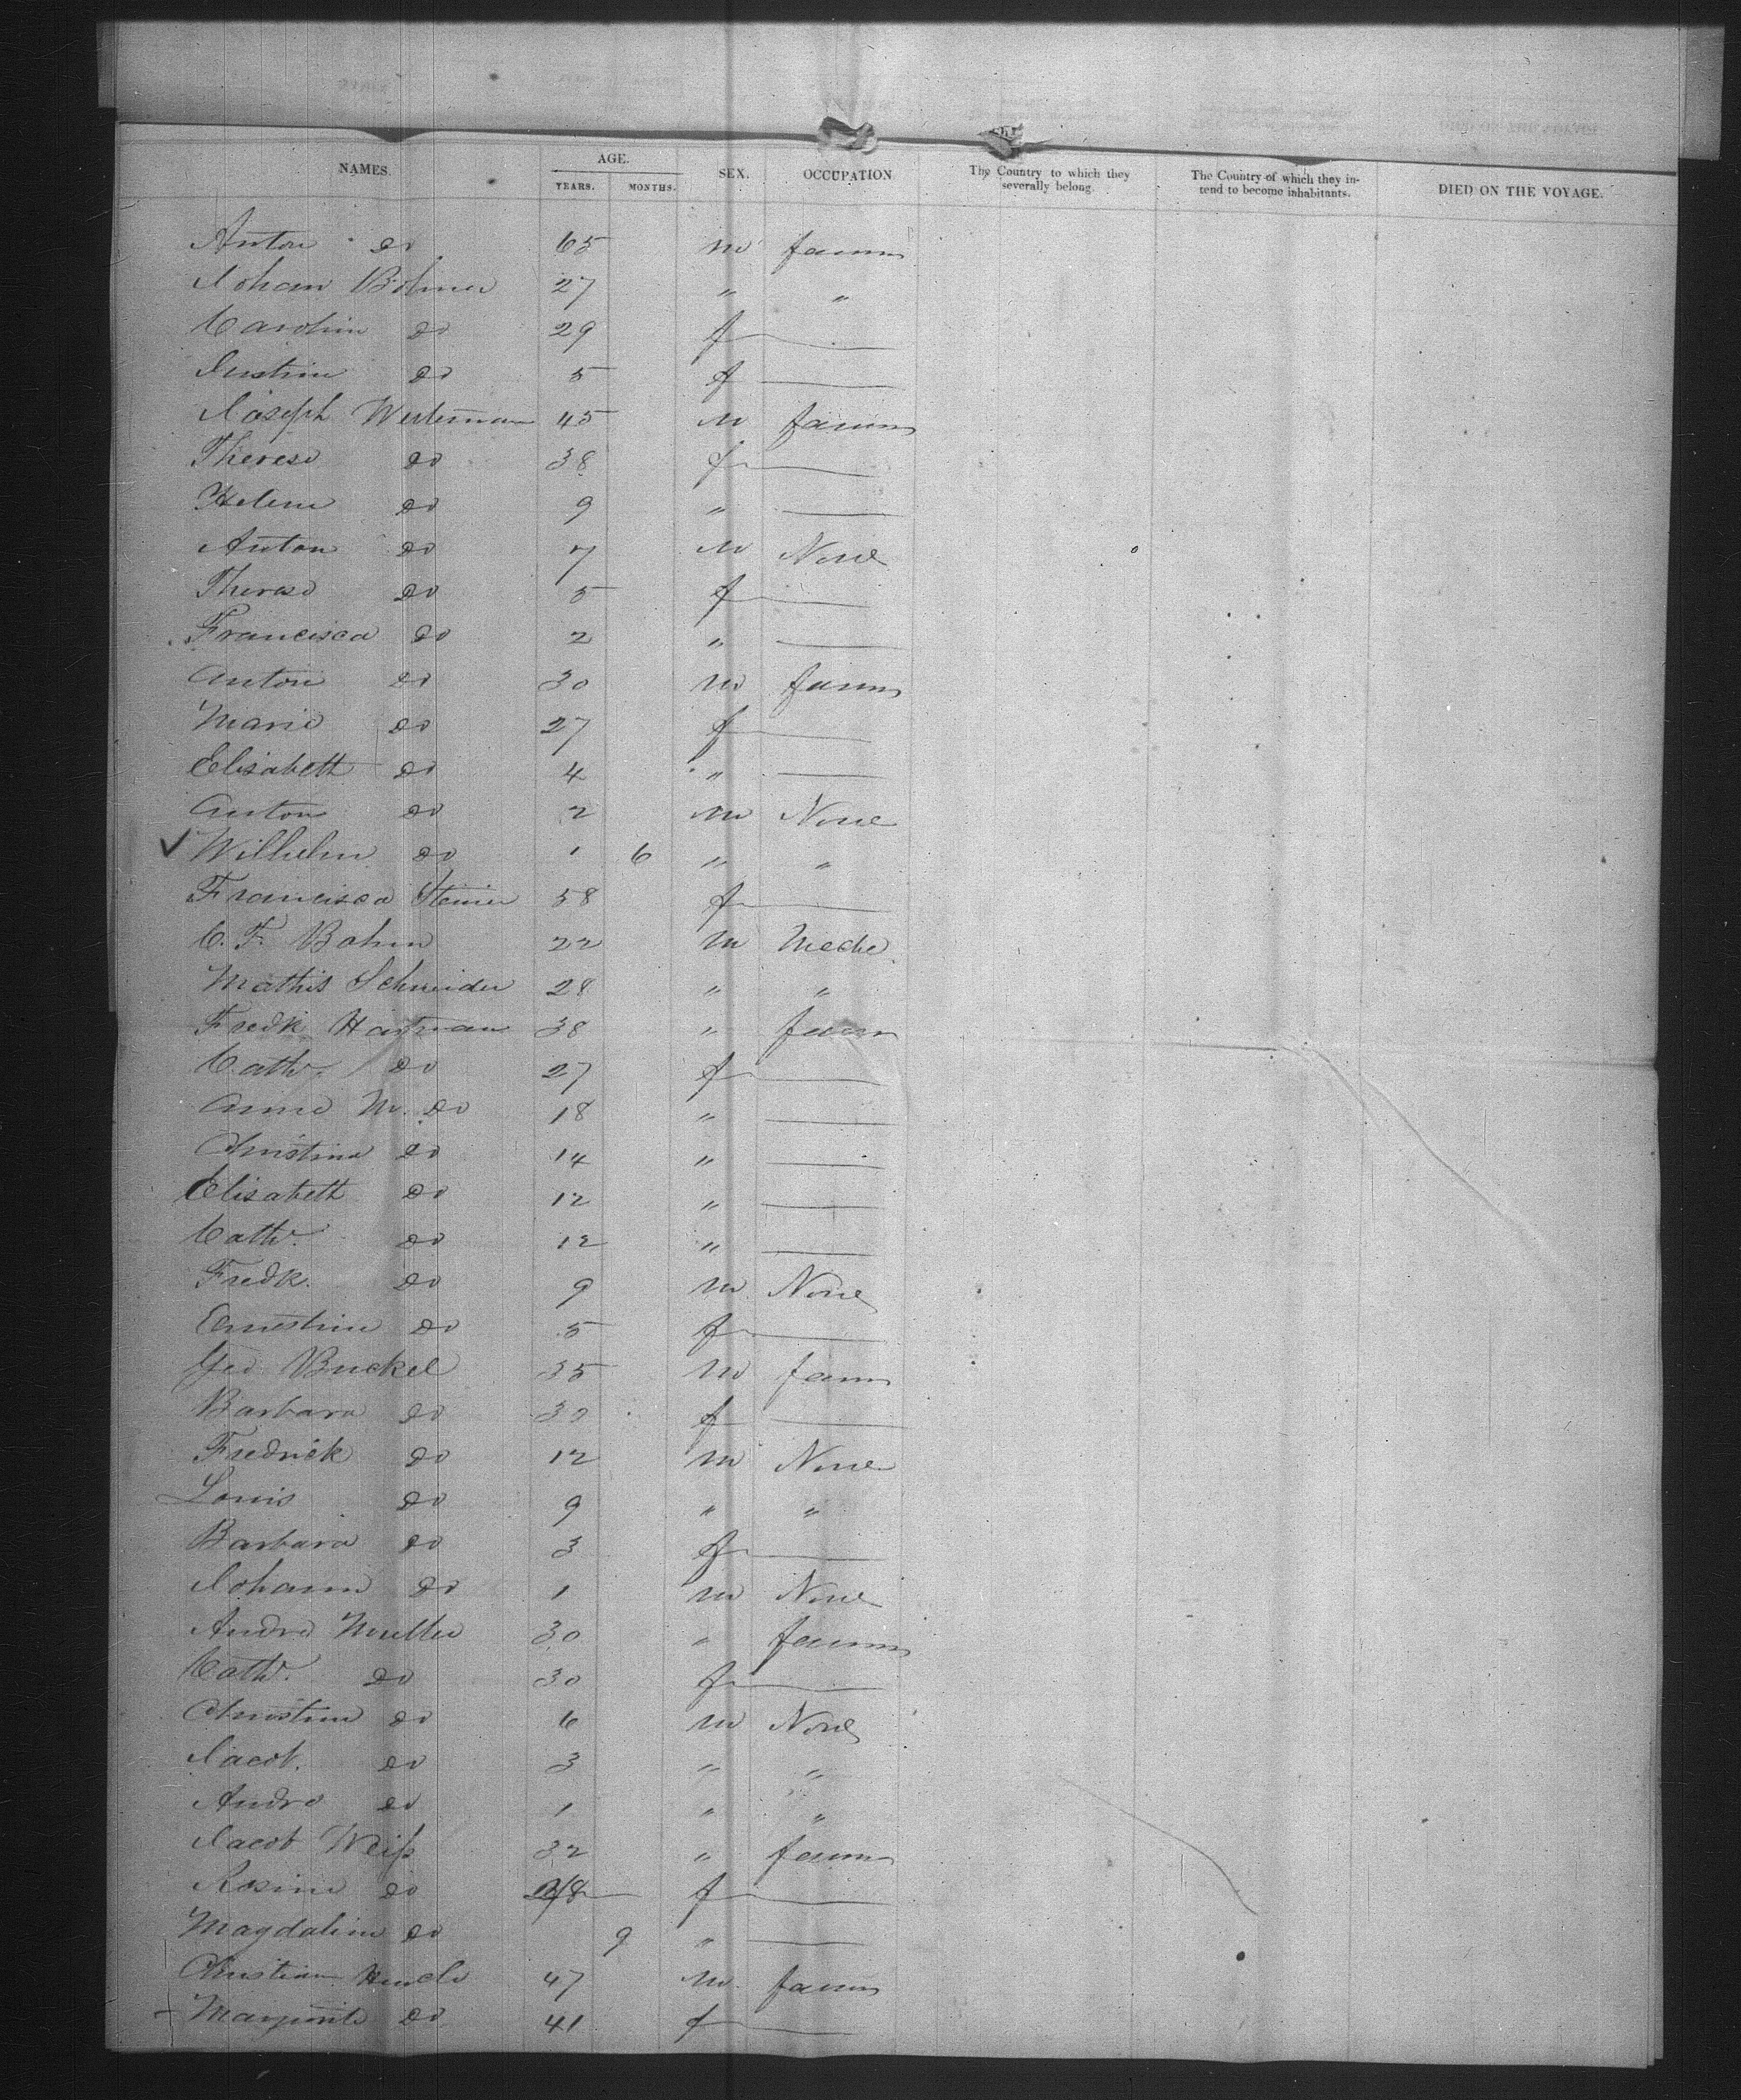 NAMES. AGE. YEARS. MONTHS. SEX. OCCUPATION The Country to which they severally belong. The Country of which they intend to become inhabitants. DIED ON THE VOYAGE.
Anton do 65 m farmr
Johan Bohmer 27 " "
Carolin do 29 f
Justine do 5 f
Joseph Westerman 45 m farmr
Therese do 38 f
Helene do 9 "
Anton do 7 m None
Therese do 5 f
Francisca do 2 "
Anton do 30 m farmr
Marie do 27 f
Elisabeth do 4 "
Anton do 2 m None
Wilhelm do 1 6 " "
Francisca Steiner 58 f
C. F. Bohm 22 m Mechc.
Mathis Schneider 28 " "
Fredk Hartman 38 " farmr
Cathr. do 27 f
Anna M. do 18 "
Christina do 14 "
Elisabeth do 12 "
Cathr. do 12 "
Fredk. do 9 m None
Ernestine do 5 f
Geo Buckel 35 m farmr
Barbara do 30 f
Fredrick do 12 m None
Louis do 9 " "
Barbara do 3 f
Johann do 1 m None
Andre Muller 30 " farmr
Cathr. do 30 f
Christian do 6 m None
Jacob. do 3 " "
Andre do 1 " "
Jacob Weiß 32 " farmr
Rosine do 28 f
Magdalene do 9 "
Christian 47 m farmr
Margarite do 41 f